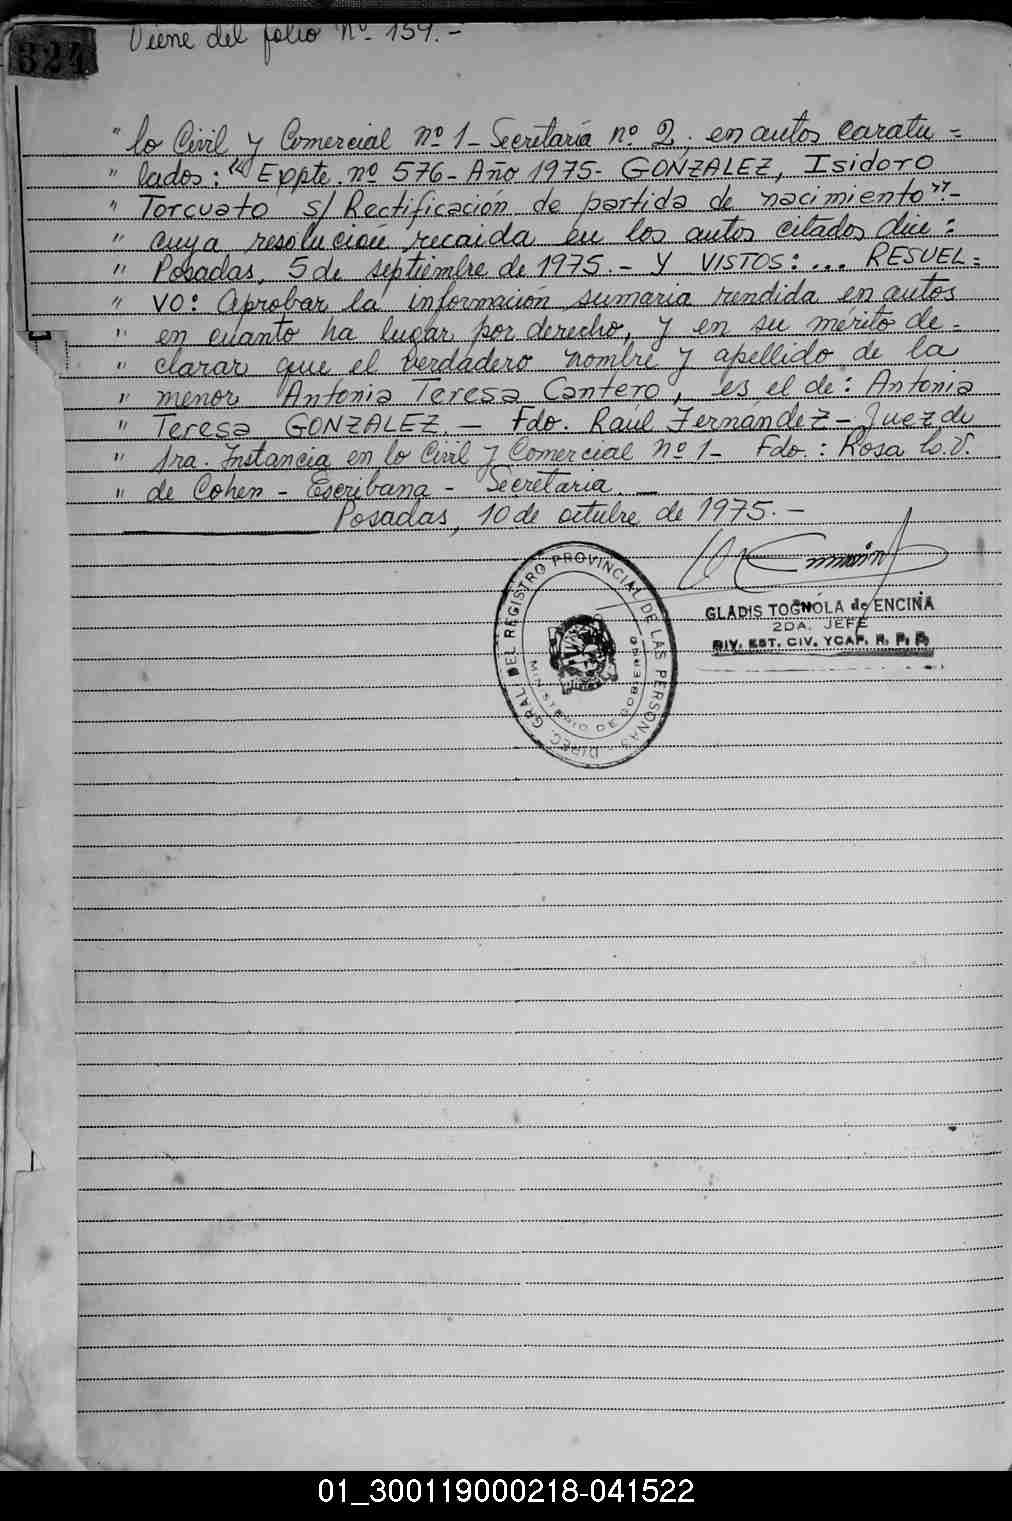 324
Viene del folio Nº 159.-
" lo Civil y Comercial nº 1 - Secretaría nº 2, en autos caratu =
" lados: " Expte. nº 576 - Año 1975 - GONZALEZ, Isidoro
" Torcuato s/ Rectificación de partida de nacimiento".-
" cuya resolución recaida en los autos citados dice:
" Posadas, 5 de septiembre de 1975.- Y VISTOS: ... RESUEL=
" VO: Aprobar la información sumaria rendida en autos
" en cuanto ha lugar por derecho, y en su mérito de=
" clarar que el verdadero nombre y apellido de la
" menor Antonia Teresa Cantero, es el de: Antonia
" Teresa GONZALEZ. — Fdo. Raúl Fernández - Juez de
" 1ra. Instancia en lo Civil y Comercial nº 1 - Fdo.: Rosa
" de Cohen - Escribana - Secretaria. —
Posadas, 10 de octubre de 1975. -
DIREC. GRAL DEL REGISTRO PROVINCIAL DE LAS PERSONAS
MINISTERIO DE GOBIERNO
GLADIS TOGNOLA de ENCINA
2DA. JEFE
DIV. EST. CIV. Y CAP. R. P. P.
01_300119000218-041522